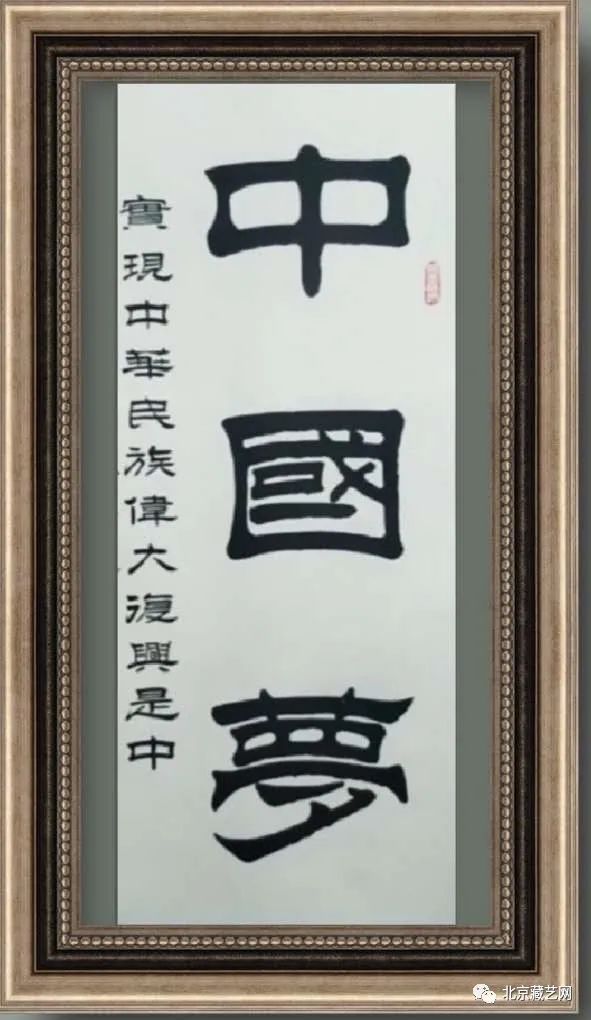 中國夢
實現中華民族偉大復興是中
北京藏艺网